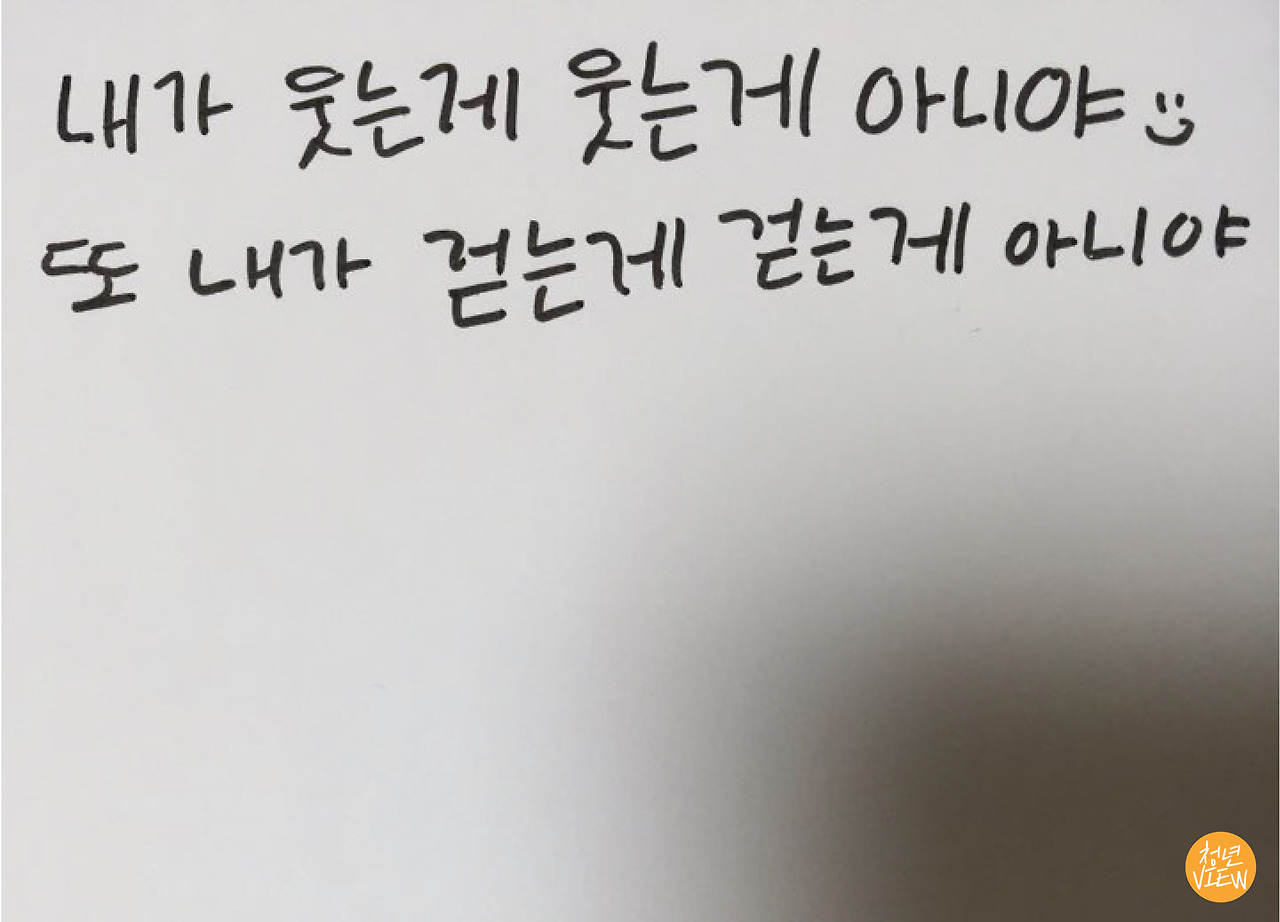 내가 웃는게 웃는게 아니야
또 내가 걷는게 걷는게 아니야
청년
VIEW